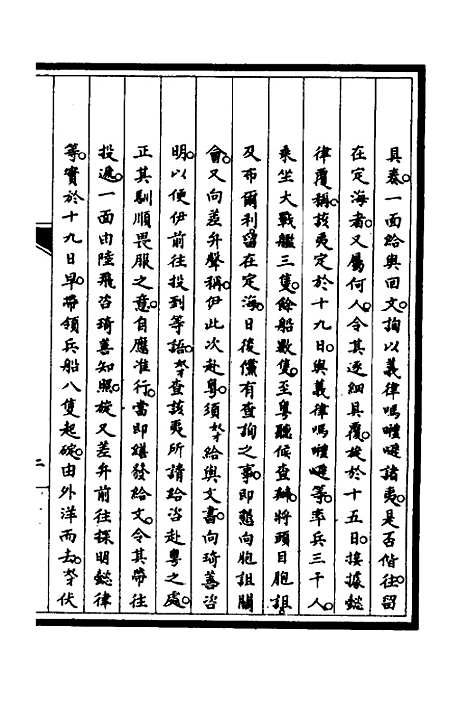 具奏。一面給與回文。詢以義律嗎哩遜諸夷。是否偕往。留
在定海者。又屬何人。令其逐細具覆。旋於十五日。接據懿
律覆稱。該夷定於十九日。與義律嗎哩遜等。率兵三千人。
乘坐大戰艦三隻。餘船數隻。至粵聽候查辦。將頭目胞詛。
及布爾利。留在定海。日後儻有查詢之事。即懇向胞詛關
會。又向差弁聲稱。伊此次赴粵。須奴才給與文書。向琦善咨
明。以便伊前往投到等語。奴才查該夷所請給咨赴粵之處。
正其馴順畏服之意。自應准行。當即繕發給文。令其帶往
投遞。一面由陸飛咨琦善知照。旋又差弁前往探明懿律
等。實於十九日早。帶領兵船八隻起碇。由外洋而去。奴才伏
二